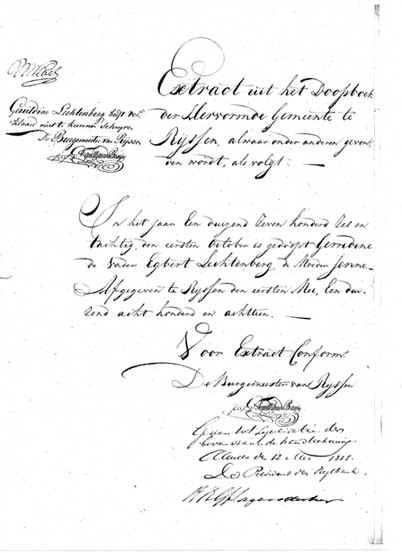 Gerridina Lechtenberg
verklaard niet te kunnen Schryven
De Burgemeester van Ryssen
Extract uit het Doopboek
der Hervormde Gemeente te
Ryssen, alwaar onder anderen gevon-
den wordt, als volgt: —
In het jaar Een duizend Zeven honderd Zes en
tachtig, den eersten October is gedoopt Gerridene
de Vader Egbert Lechtenberg, de Moeder Jenne—
Afgegeven te Ryssen den eersten Mei, Een dui-
zend acht honderd en achttien. —
Voor Extract Conform
De Burgemeester van Ryssen
Gezien tot Legalisatie der
bovenstaande handtekening
Almelo den 12 Mei 1818.
De President der Regtbank.